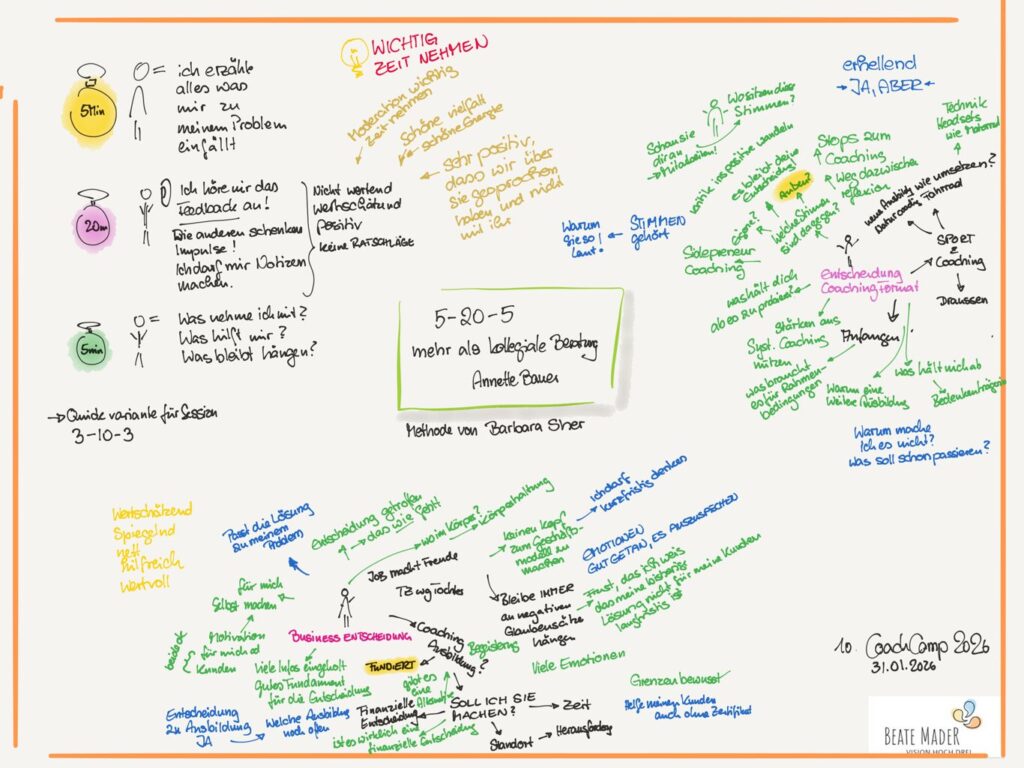 5 Min
ich erzähle
alles was
mir zu
meinem Problem
einfällt
20m
Ich höre mir das
Feedback an!
Die anderen schenken
Impulse!
Ich darf mir Notizen
machen.
Nicht wertend
wertschätzend
positiv
keine RATSCHLÄGE
5min
Was nehme ich mit?
Was hilft mir?
Was bleibt hängen?
→ Quick variante für Session
3-10-3
WICHTIG
ZEIT NEHMEN
Moderation wichtig
Zeit nehmen
Schöne vielfalt
schöne Energie
Sehr positiv,
dass wir über
sie gesprochen
haben und nicht
mit ihr
5-20-5
mehr als kollegiale Beratung
Annette Bauer
Methode von Barbara Sher
erhellend
→ JA, ABER ←
Wo sitzen diese
Stimmen?
Schau sie
dir an
→ Mitarbeiter!
kritik ins positive wandeln
es bleibt deine
Entscheidung
Außen?
Stops zum
Coaching
Weg dazwische
reflexion
Technik
Headsets
wie Motorrad
neue Ausbildung wie umsetzen?
Natur coaching Fahrrad
SPORT
Coaching
Draussen
STIMMEN
gehört
Warum
sie so
laut!
Eigene?
Welche Stimme
sind dagegen?
Sidepreneur
Coaching
Entscheidung
Coachingformat
was hält dich
ab es zu probieren?
Stärken aus
Syst. Coaching
nützen
Anfangen
was braucht
es für Rahmen-
bedingungen
Warum eine
Weitere Ausbildung
was hält mich ab
Bedenkenträgerin
Warum mache
Ich es nicht?
Was soll schon passieren?
Wertschätzend
Spiegelnd
nett
hilfreich
wertvoll
Passt die Lösung
zu meinem
Problem
Entscheidung getroffen
→ das wie fehlt
wo im Körper?
→ Körperhaltung
Job macht Freude
TZ wg Tochter
keinen Kopf
zum Geschäfts-
modell zu
machen
Ich darf
kurzfristig denken
EMOTIONEN
GUT GETAN, ES AUSZUSPRECHEN
Bleibe IMMER
an negativen
Glaubensätze
hängen
Frust, das ich weis
das meine bisherige
Lösung nicht für meine Kunden
langfristig ist
für mich
Selbst machen
beides
Motivation
für mich od
Kunden
BUSINESS ENTSCHEIDUNG
Coaching
Ausbildung?
Begeisterung
FUNDIERT
Viele Infos eingeholt
gutes Fundament
für die Entscheidung
gibt es
eine
Alternative
Viele Emotionen
Entscheidung
zu Ausbildung
JA
→ Welche Ausbildung
noch offen
Finanzielle
Entscheidung
ist es wirklich eine
finanzielle Entscheidung
SOLL ICH SIE
MACHEN?
→ Zeit
Standort → Herausfordernd
Grenzen bewusst
Helfe meinen Kunden
auch ohne Zertifikat
10. CoachCamp 2026
31.01.2026
BEATE MADER
VISION HOCH DREI